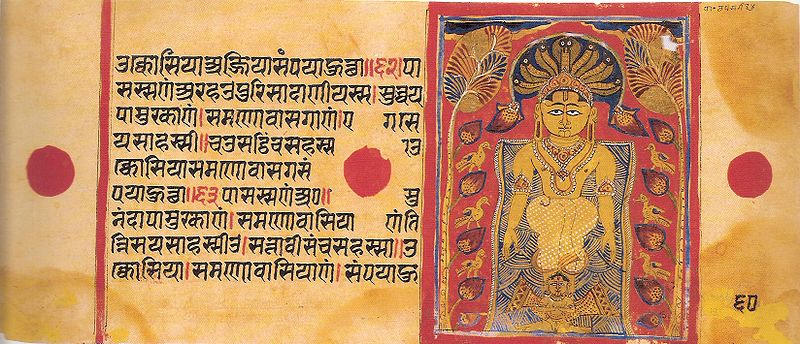 उक्कोसिया अज्जियासंपया हुत्था॥६२।पा
सस्सणं अरहउ पुरिसादाणीयस्स। सुव्वय
पामुरकाणं।समणोवासगाणं।ए गास
यसाहस्सी॥चउसट्ठिं च सहस्स उ
क्कोसिया समणोवासगसं
पया हुत्था॥६३ पासस्सणं अ०॥ सु
नंदापामुरकाणं।समणोवासिया णं ति
न्निसयसाहस्सीउ।सत्तावीसं च सहस्सा॥उ
क्कोसिया।समणोवासियाणं। संपया हु
६०